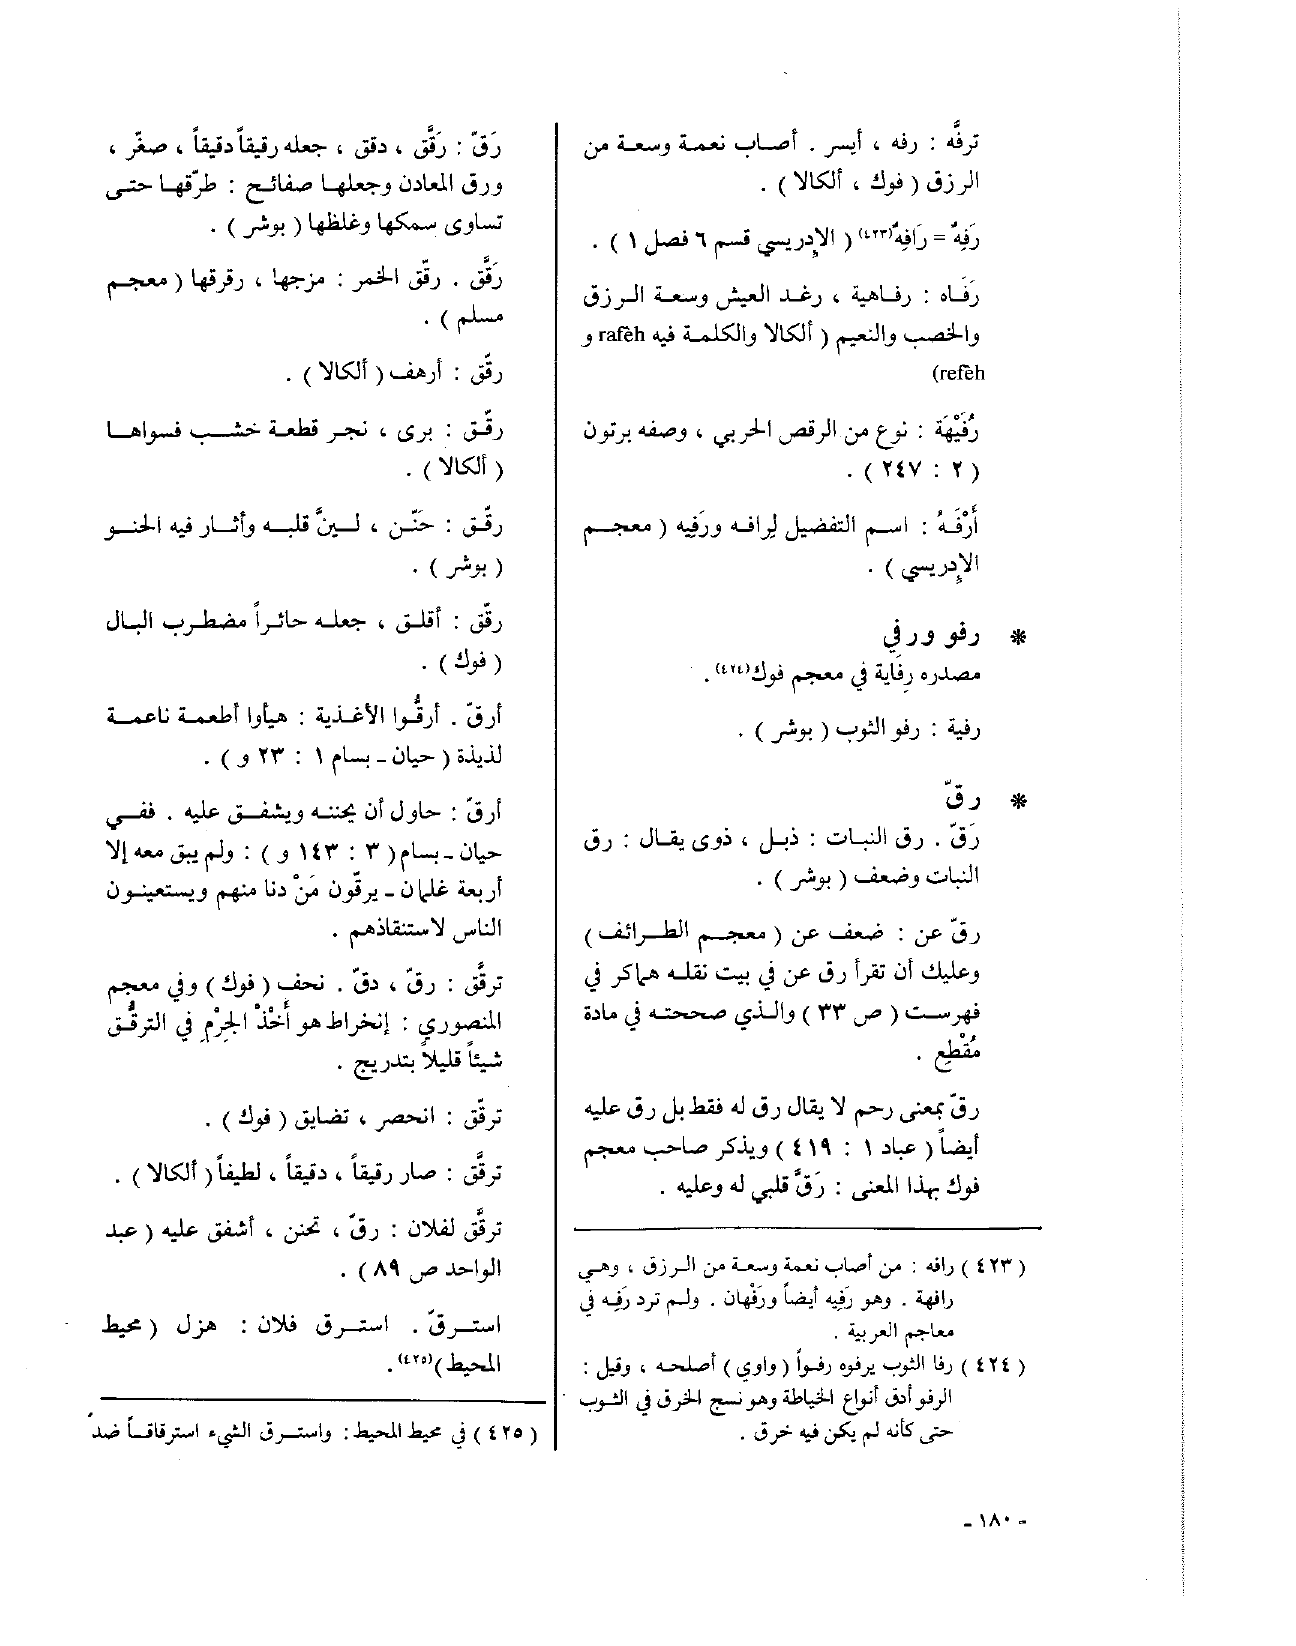 ترفَّه : رفه ، أيسر . أصاب نعمة وسعة من
الرزق ( فوك ، ألكالا ) .
رَفِهٌ = رَافِهٌ(٤٢٣) ( الإدريسي قسم ٦ فصل ١ ) .
رَفَاه : رفاهية ، رغد العيش وسعة الرزق
والخصب والنعيم ( ألكالا والكلمة فيه rafèh و
refèh)
رُفَيْهَة : نوع من الرقص الحربي ، وصفه برتون
( ٢ : ٢٤٧ ) .
أَرْفَهُ : اسم التفضيل لِرافه ورَفِيه ( معجم
الإدريسي ) .
* رفو ورفي
مصدره رِفَاية في معجم فوك(٤٢٤) .
رفية : رفو الثوب ( بوشر ) .
* رقّ
رَقّ . رق النبات : ذبل ، ذوى يقال : رق
النبات وضعف ( بوشر ) .
رقّ عن : ضعف عن ( معجم الطرائف )
وعليك أن تقرأ رق عن في بيت نقله هماكر في
فهرست ( ص ٣٣ ) والذي صححته في مادة
مُقْطِع .
رقّ بمعنى رحم لا يقال رق له فقط بل رق عليه
أيضاً ( عباد ١ : ٤١٩ ) ويذكر صاحب معجم
فوك بهذا المعنى : رَقَّ قلبي له وعليه .
( ٤٢٣ ) رافه : من أصاب نعمة وسعة من الرزق ، وهي
رافهة . وهو رَفِيه أيضاً ورَفْهان . ولم ترد رَفِه في
معاجم العربية .
( ٤٢٤ ) رفا الثوب يرفوه رفواً ( واوي ) أصلحه ، وقيل :
الرفو أدق أنواع الخياطة وهو نسج الخرق في الثوب
حتى كأنه لم يكن فيه خرق .
رَقّ : رَقَّق ، دقق ، جعله رقيقاً دقيقاً ، صغّر ،
ورق المعادن وجعلها صفائح : طرّقها حتى
تساوى سمكها وغلظها ( بوشر ) .
رَقَّق . رقّق الخمر : مزجها ، رقرقها ( معجم
مسلم ) .
رقّق : أرهف ( ألكالا ) .
رقّق : برى ، نجر قطعة خشب فسواها
( ألكالا ) .
رقّق : حَنّن ، لينَّ قلبه وأثار فيه الحنو
( بوشر ) .
رقّق : أقلق ، جعله حائراً مضطرب البال
( فوك ) .
أرقّ . أرقُّوا الأغذية : هيأوا أطعمة ناعمة
لذيذة ( حيان ـ بسام ١ : ٢٣ و ) .
أرقّ : حاول أن يحننه ويشفق عليه . ففي
حيان ـ بسام ( ٣ : ١٤٣ و ) : ولم يبق معه إلا
أربعة غلمان ـ يرقّون مَنْ دنا منهم ويستعينون
الناس لاستنقاذهم .
ترقَّق : رقّ ، دقّ . نحف ( فوك ) وفي معجم
المنصوري : إنخراط هو أَخْذُ الجِرْمِ في الترقُّق
شيئاً قليلاً بتدريج .
ترقّق : انحصر ، تضايق ( فوك ) .
ترقَّق : صار رقيقاً ، دقيقاً ، لطيفاً ( ألكالا ) .
ترقَّق لفلان : رقّ ، تحنن ، أشفق عليه ( عبد
الواحد ص ٨٩ ) .
استرقّ . استرق فلان : هزل ( محيط
المحيط )(٤٢٥) .
( ٤٢٥ ) في محيط المحيط : واسترق الشيء استرقاقاً ضد
- ١٨٠ -